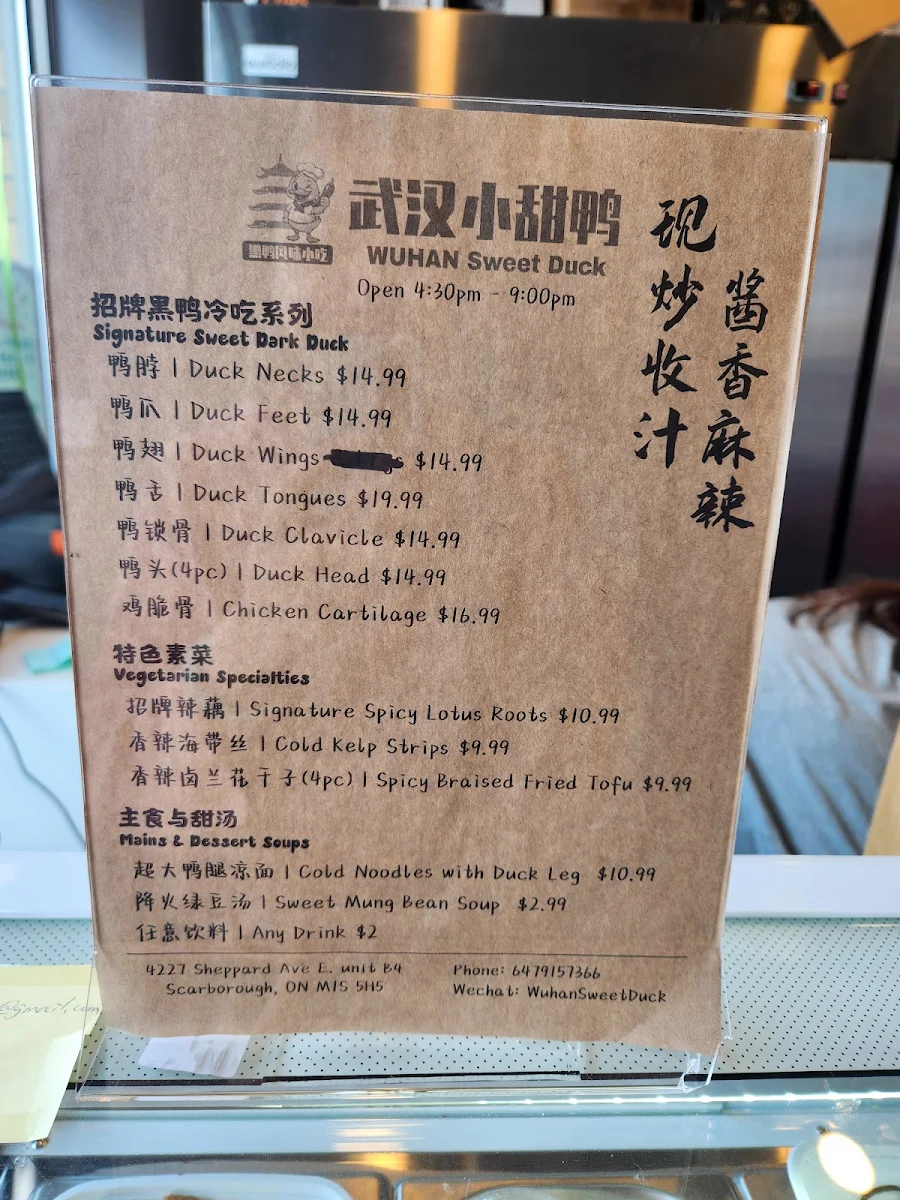 武汉小甜鸭
黑鸭风味小吃
WUHAN Sweet Duck
Open 4:30pm - 9:00pm
现炒收汁
酱香麻辣
招牌黑鸭冷吃系列
Signature Sweet Dark Duck
鸭脖 | Duck Necks $14.99
鸭爪 | Duck Feet $14.99
鸭翅 | Duck Wings $14.99
鸭舌 | Duck Tongues $19.99
鸭锁骨 | Duck Clavicle $14.99
鸭头(4pc) | Duck Head $14.99
鸡脆骨 | Chicken Cartilage $16.99
特色素菜
Vegetarian Specialties
招牌辣藕 | Signature Spicy Lotus Roots $10.99
香辣海带丝 | Cold Kelp Strips $9.99
香辣卤兰花干子(4pc) | Spicy Braised Fried Tofu $9.99
主食与甜汤
Mains & Dessert Soups
超大鸭腿凉面 | Cold Noodles with Duck Leg $10.99
降火绿豆汤 | Sweet Mung Bean Soup $2.99
任意饮料 | Any Drink $2
4227 Sheppard Ave E. unit B4
Scarborough, ON M1S 5H5
Phone: 6479157366
Wechat: WuhanSweetDuck
@gmail.com